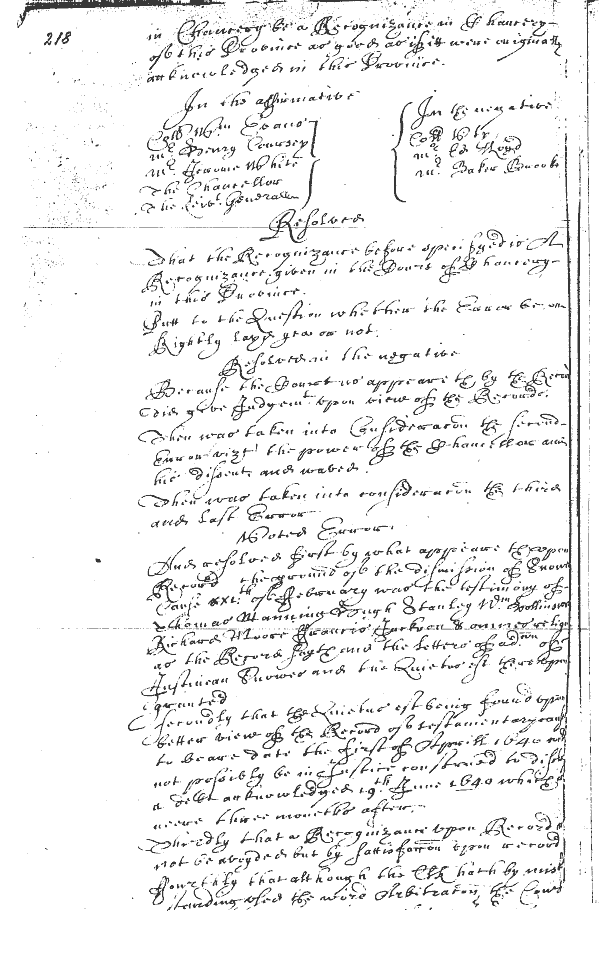 218
in Chancery be a Recognizance in Chancery
of this Province as good as if itt were originally
acknowledged in this Province.
In the affirmative
Coll Wm Evans
mr Henry Coursey
mr Jerome White
The Chancellor
The Leivt Generall
In the negative
Coll Utye
mr Ed Lloyd
mr Baker Brooke
Resolved
That the Recognizance before specifyed is A
Recognizance given in the Court of Chancery
in this Province.
Putt to the Question whether the Error be
Rightly layd yea or not.
Resolved in the negative
Because the Court as appeareth by the Record
did give Judgemt upon view of the Records.
Then was taken into Consideracon the second
Error vizt the power of the Chancellor and
his dissent and waved.
Then was taken into consideracon the third
and last Error
Noted Error.
And resolved first by what appeareth upon
Record the ground of the dismission of Snows
Cause xxi th of February was the testimony of
Thomas Manning Hugh Stanley Wm
Richard Moore Francis Jackson
as the Record sayth and the letters of admon of
Justinian Snowes and the Quietus est thereupon
granted
Secondly that the Quietus est being found upon
better view of the Record of testamentary
to beare date the first of Aprill 1640
not possibly be in Justice construed to
a debt acknowledged 19th June 1640 which
neere three moneths after.
Thirdly that a Recognizance upon Record
not be avoyded but by sattisfaccon upon record
Fourthly that although the Clk hath by
standing used the word Arbitracon the Court